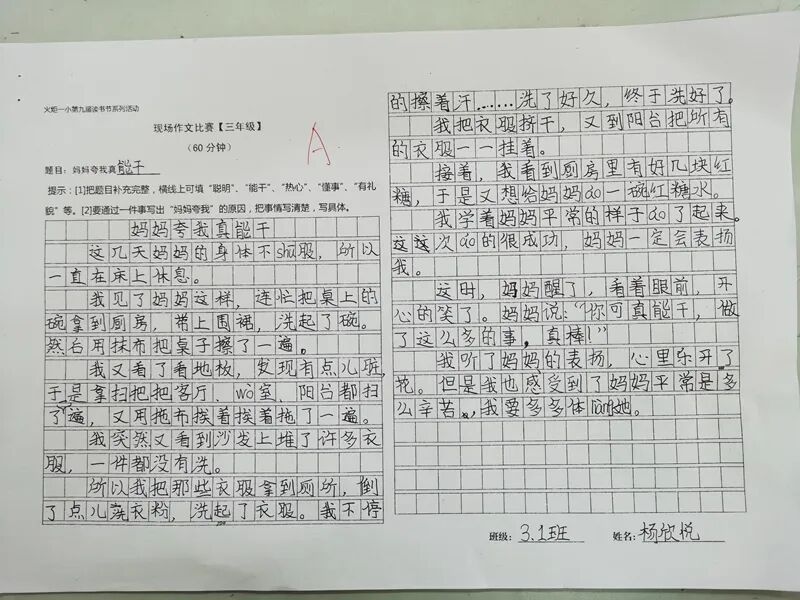 火炬一小第九届读书节系列活动
现场作文比赛【三年级】
（60分钟）
A
题目：妈妈夸我真能干
提示：[1]把题目补充完整，横线上可填“聪明”、“能干”、“热心”、“懂事”、“有礼
貌”等。[2]要通过一件事写出“妈妈夸我”的原因，把事情写清楚，写具体。
妈妈夸我真能干
这几天妈妈的身体不shū服，所以
一直在床上休息。
我见了妈妈这样，连忙把桌上的
碗拿到厨房，带上围裙，洗起了碗。
然后用抹布把桌子擦了一遍。
我又看了看地板，发现有点儿脏，
于是拿扫把把客厅、wò室、阳台都扫
了遍，又用拖布挨着挨着拖了一遍。
我突然又看到沙发上堆了许多衣
服，一件都没有洗。
所以我把那些衣服拿到厕所，倒
了点儿洗衣粉，洗起了衣服。我不停
的擦着汗……洗了好久，终于洗好了。
我把衣服挤干，又到阳台把所有
的衣服一一挂着。
接着，我看到厨房里有好几块红
糖，于是又想给妈妈áo一碗红糖水。
我学着妈妈平常的样子áo了起来。
这次áo的很成功，妈妈一定会表扬
我。
这时，妈妈醒了，看着眼前，开
心的笑了。妈妈说：“你可真能干，做
了这么多的事，真棒！”
我听了妈妈的表扬，心里乐开了
花。但是我也感受到了妈妈平常是多
么辛苦，我要多多体liàng她。
班级：3.1班 姓名：杨欣悦